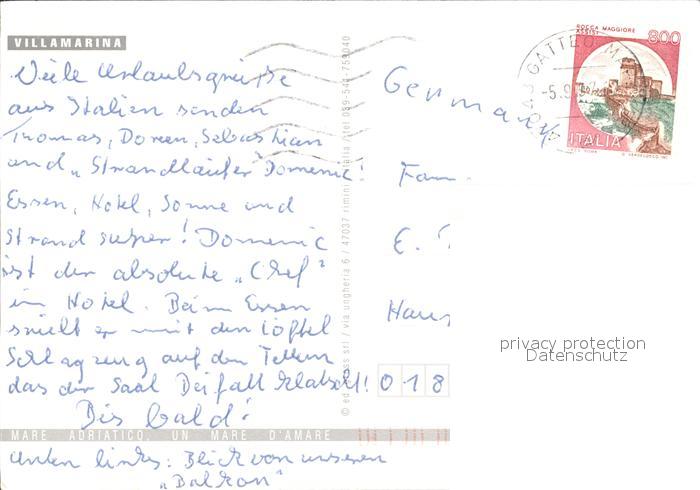 VILLAMARINA
Viele Urlaubsgrüße
aus Italien senden
Thomas, Doreen, Sebastian
und "Strandläufer" Domenic!
Essen, Hotel, Sonne und
Strand super! Domenic
ist der absolute "Chef"
im Hotel. Beim Essen
spielt er mit den Löffel
Schlagzeug auf den Tellern
das der Saal Beifall klatscht!
Bis bald!
MARE ADRIATICO, UN MARE D'AMARE
unten links: Blick von unseren
"Balkon"
/ via ungheria 6 / 47037 rimini
Germany
Fam
E.
Haus
018
ROCCA MAGGIORE
ASSISI
800
ITALIA
GATTEO M
-5.9
privacy protection
Datenschutz